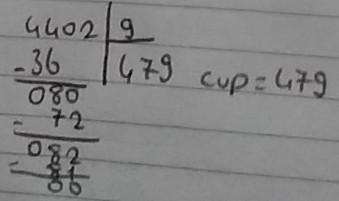 4402 9
-36 479 cup = 479
080
- 72
082
= 81